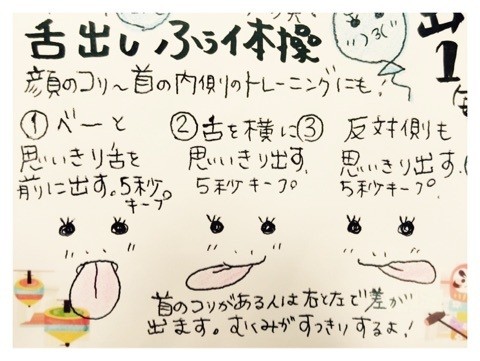 舌出しふぅ体操
顔のコリ〜首の内側のトレーニングにも!
①べーと
思いきり舌を
前に出す。5秒
キープ
②舌を横に
思いきり出す。
5秒キープ
③反対側も
思いきり出す。
5秒キープ
首のコリがある人は右と左で差が
出ます。むくみがすっきりするよ!